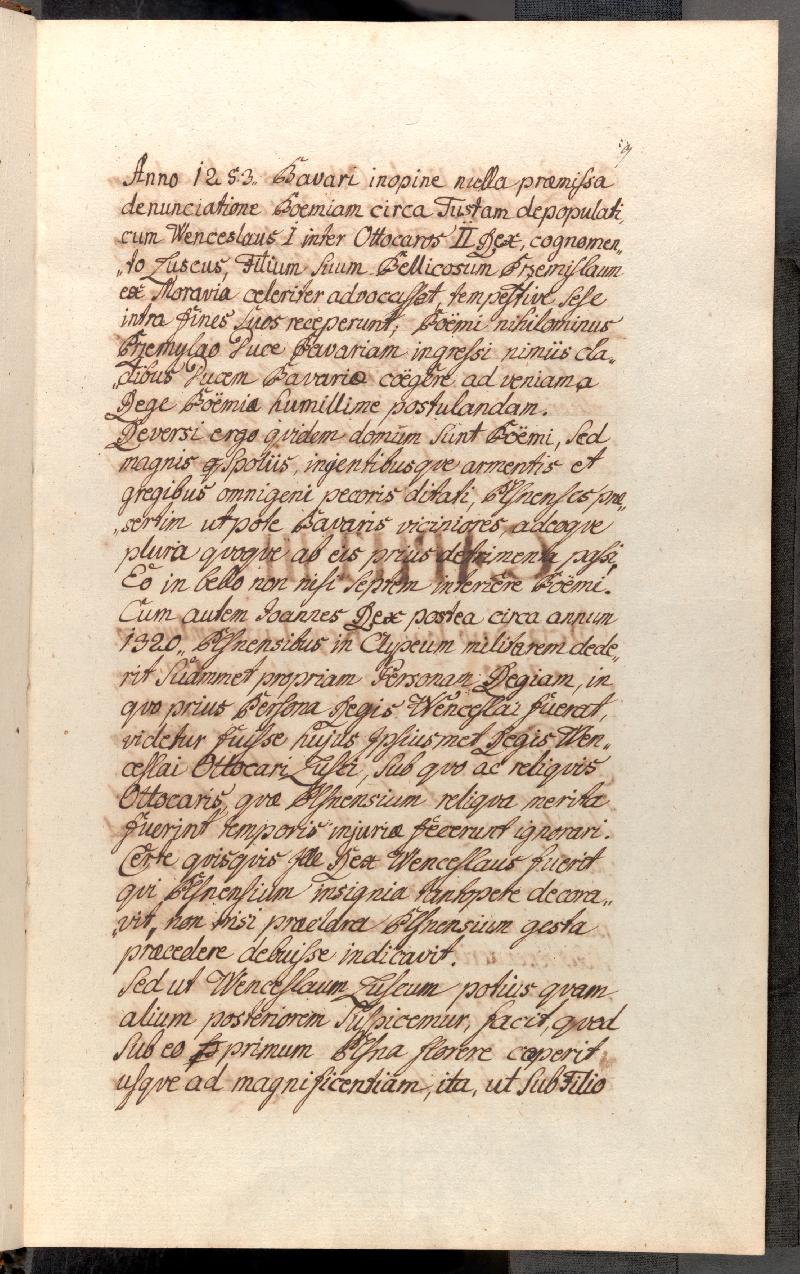 59
Anno 1253„ Bavari inopine nulla præmiſsa
denunciatione Boemiam circa Tustam depopulati,
cum Wenceslaus I inter Ottocaros II Rex, cognomen„
„to Luscus, Filium ſuum Bellicosum Przemiſlaum
ex Moravia celeriter advocaſset, tempeſtive ſeſe
intra fines ſuos receperunt; Boëmi nihilominus
Przemyſlao Duce Bavariam ingreſsi nimiis cla„
„dibus Ducem Bavariæ coëgere ad veniam a
Rege Boëmiæ humillime postulandam.
Reversi ergo qvidem domum ſunt Boëmi, ſed
magnis ſpoliis, ingentibusqve armentis et
gregibus omnigeni pecoris ditati, Plſnenſes præ„
„sertim utpote Bavaris viciniores, adeoqve
plura qvoqve ab eis prius detrimenta paſsi,
Eo in bello non niſi ſeptem interiere Boëmi.
Cum autem Joannes Rex postea circa annum
1320„ Plſnensibus in Clypeum militarem dede„
rit ſuammet propriam Personam Regiam, in
qvo prius Perſona Regis Wenceſlai fuerat,
videtur fuiſse hujus Ipſiusmet Regis Wen„
ceſlai Ottocari Luſci, ſub qvo ac reliqvis
Ottocaris, qvæ Plſnensium reliqva merita
fuerint temporis injuriæ fecerunt ignorari.
Certe qvisqvis ille Rex Wenceſlaus fuerit
qvi Plſnenſium insignia tantopere decora„
„vit, non nisi præclara Plſnensium gesta
præcedere debuiſse indicavit.
Sed ut Wenceſlaum Luſcum potius qvam
alium posteriorem ſuſpicemur, facit, qvod
ſub eo primum Plſna florere cæperit
uſqve ad magnificentiam, ita, ut ſub Filio